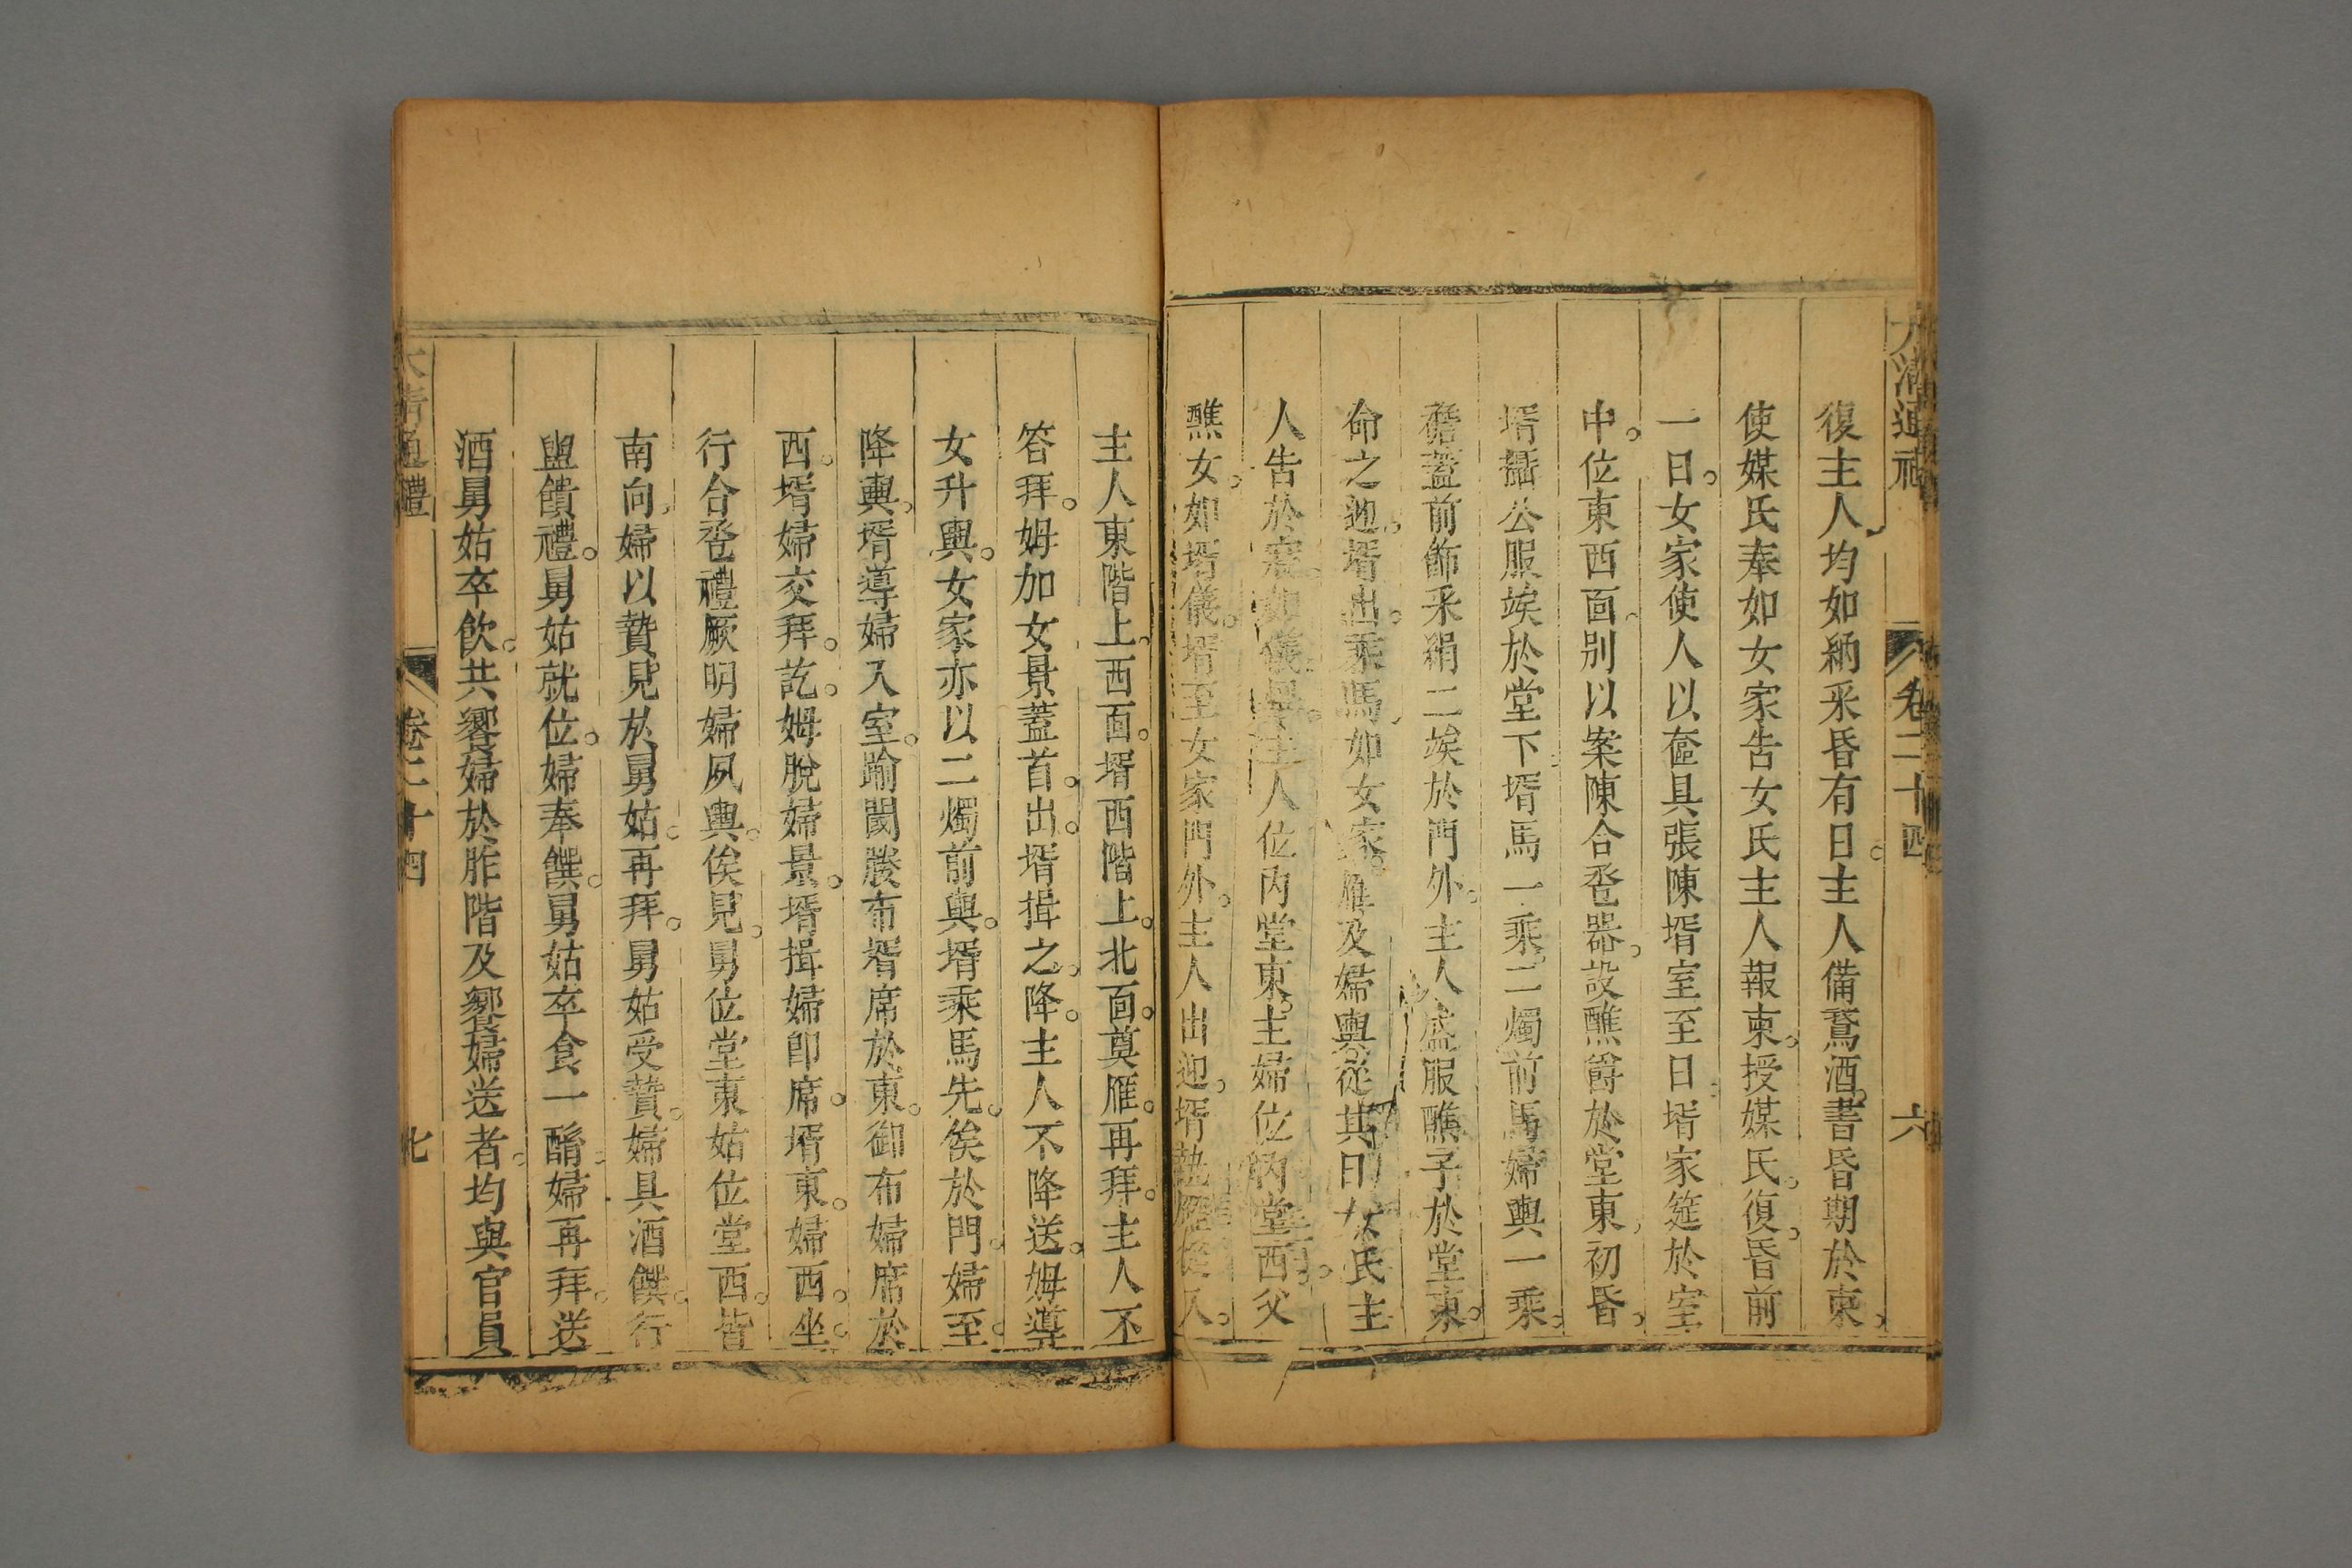 大清通禮 卷二十四 六
復主人均如納采昏有日。主人備鵞酒。書昏期於柬。
使媒氏奉如女家告女氏主人報柬。授媒氏。復。昏前
一日。女家使人以奩具張陳壻室至日壻家筵於室
中。位東西面。別以案陳合卺器。設醮爵於堂東。初昏。
壻攝公服竢於堂下壻馬一乘。二燭前馬婦輿一乘。
襜蓋前飾采絹二竢於門外。主人盛服醮子於堂東。
命之迎。壻出。乘馬如女家。雁及婦輿從其日女氏主
人告於寢。如儀。主人位內堂東。主婦位內堂西。父
醮女。如壻儀。壻至女家門外。主人出迎。壻執雁從入。
主人東階上。西面。壻西階上。北面。奠雁。再拜。主人不
答拜。姆加女景蓋首。出。壻揖之。降。主人不降送。姆導
女升輿。女家亦以二燭前輿。壻乘馬先。竢於門。婦至。
降輿。壻導婦入室。踰閾媵布壻席於東。御布婦席於
西。壻婦交拜。訖。姆脫婦景。壻揖婦卽席。壻東。婦西。坐。
行合卺禮厥明婦夙興。俟見。舅位堂東姑位堂西。皆
南向。婦以贄見於舅姑。再拜。舅姑受贄。婦具酒饌。行
盥饋禮。舅姑就位。婦奉饌。舅姑卒食一酳。婦再拜。送
酒舅姑卒飲。共饗婦於阼階及饗婦送者。均與官員
大清通禮 卷二十四 七